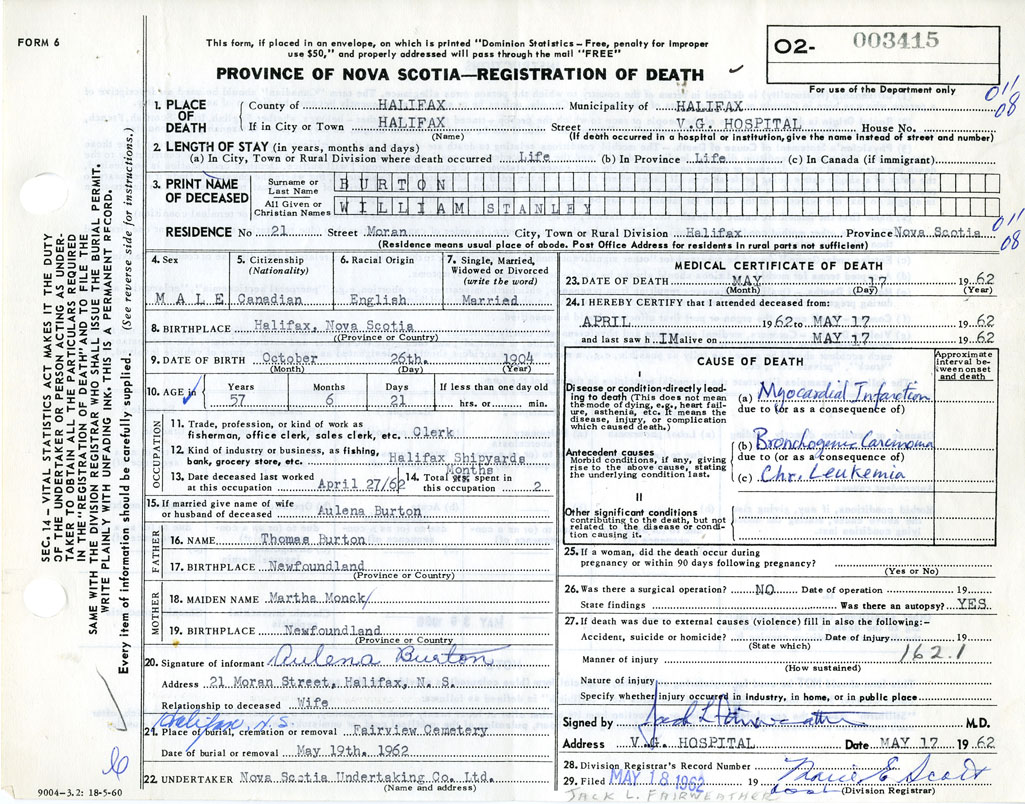 FORM 6
This form, if placed in an envelope, on which is printed "Dominion Statistics – Free, penalty for improper
use $50," and properly addressed will pass through the mail "FREE"
PROVINCE OF NOVA SCOTIA—REGISTRATION OF DEATH
O2- 003415
For use of the Department only
011
08
1. PLACE OF DEATH
County of HALIFAX Municipality of HALIFAX
If in City or Town HALIFAX Street V.G. HOSPITAL House No.
(Name) (If death occurred in a hospital or institution, give the name instead of street and number)
2. LENGTH OF STAY (in years, months and days)
(a) In City, Town or Rural Division where death occurred Life (b) In Province Life (c) In Canada (if immigrant)
3. PRINT NAME OF DECEASED
Surname or Last Name BURTON
All Given or Christian Names WILLIAM STANLEY
RESIDENCE No 21 Street Moran City, Town or Rural Division Halifax Province Nova Scotia
(Residence means usual place of abode. Post Office Address for residents in rural parts not sufficient)
011
08
4. Sex
MALE
5. Citizenship
(Nationality)
Canadian
6. Racial Origin
English
7. Single, Married,
Widowed or Divorced
(write the word)
Married
8. BIRTHPLACE Halifax, Nova Scotia
(Province or Country)
9. DATE OF BIRTH October 26th. 1904
(Month) (Day) (Year)
10. AGE
Years Months Days If less than one day old
57 6 21 hrs. or min.
OCCUPATION
11. Trade, profession, or kind of work as
fisherman, office clerk, sales clerk, etc. Clerk
12. Kind of industry or business, as fishing,
bank, grocery store, etc. Halifax Shipyards
13. Date deceased last worked
at this occupation April 27/62
14. Total Months spent in
this occupation 2
15. If married give name of wife
or husband of deceased Aulena Burton
FATHER
16. NAME Thomas Burton
17. BIRTHPLACE Newfoundland
(Province or Country)
MOTHER
18. MAIDEN NAME Martha Monck
19. BIRTHPLACE Newfoundland
(Province or Country
20. Signature of informant Aulena Burton
Address 21 Moran Street, Halifax, N. S.
Relationship to deceased Wife
Halifax, N.S
21. Place of burial, cremation or removal Fairview Cemetery
Date of burial or removal May 19th. 1962
22. UNDERTAKER Nova Scotia Undertaking Co. Ltd.
(Name and address)
9004-3.2: 18-5-60
MEDICAL CERTIFICATE OF DEATH
23. DATE OF DEATH MAY 17 1962
(Month) (Day) (Year)
24. I HEREBY CERTIFY that I attended deceased from:
APRIL 1962 to MAY 17 1962
and last saw h IM alive on MAY 17 1962
CAUSE OF DEATH
Approximate
interval be-
tween onset
and death
I
Disease or condition directly lead-
ing to death (This does not mean
the mode of dying, e.g., heart fail-
ure, asthenia, etc. It means the
disease, injury, or complication
which caused death.)
(a) Myocardial Infarction
due to (or as a consequence of)
Antecedent causes
Morbid conditions, if any, giving
rise to the above cause, stating
the underlying condition last.
(b) Bronchogenic Carcinoma
due to (or as a consequence of)
(c) Chr. Leukemia
II
Other significant conditions
contributing to the death, but not
related to the disease or condi-
tion causing it.
25. If a woman, did the death occur during
pregnancy or within 90 days following pregnancy?
(Yes or No)
26. Was there a surgical operation? NO Date of operation 19
State findings Was there an autopsy? YES
27. If death was due to external causes (violence) fill in also the following:–
Accident, suicide or homicide? Date of injury 19
(State which)
162.1
Manner of injury
(How sustained)
Nature of injury
Specify whether injury occurred in industry, in home, or in public place
Signed by Jack L Fairweather M.D.
Address V.G. HOSPITAL Date MAY 17 1962
28. Division Registrar's Record Number
29. Filed MAY 18 1962 19
(Division Registrar)
JACK L. FAIRWEATHER
SEC. 14 – VITAL STATISTICS ACT MAKES IT THE DUTY
OF THE UNDERTAKER OR PERSON ACTING AS UNDER-
TAKER TO OBTAIN ALL THE PARTICULARS REQUIRED
IN THE "REGISTRATION OF DEATH" AND TO FILE THE
SAME WITH THE DIVISION REGISTRAR WHO SHALL ISSUE THE BURIAL PERMIT.
WRITE PLAINLY WITH UNFADING INK. THIS IS A PERMANENT RECORD.
Every item of information should be carefully supplied. (See reverse side for instructions.)